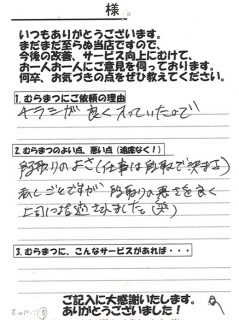 様。
いつもありがとうございます。
まだまだ至らぬ当店ですので、
今後の改善、サービス向上にむけて、
お一人お一人にご意見を伺っております。
何卒、お気づきの点をぜひ教えてください。
1. むらまつにご依頼の理由
チラシが良く入っていたので
2. むらまつのよい点、悪い点（遠慮なく！）
段取りのよさ（仕事は段取で決まる）
私しごとですが 段取りの悪さを良く
上司に指適されました。（笑）
3. むらまつに、こんなサービスがあれば・・・
ご記入に大感謝いたします。
ありがとうございました！